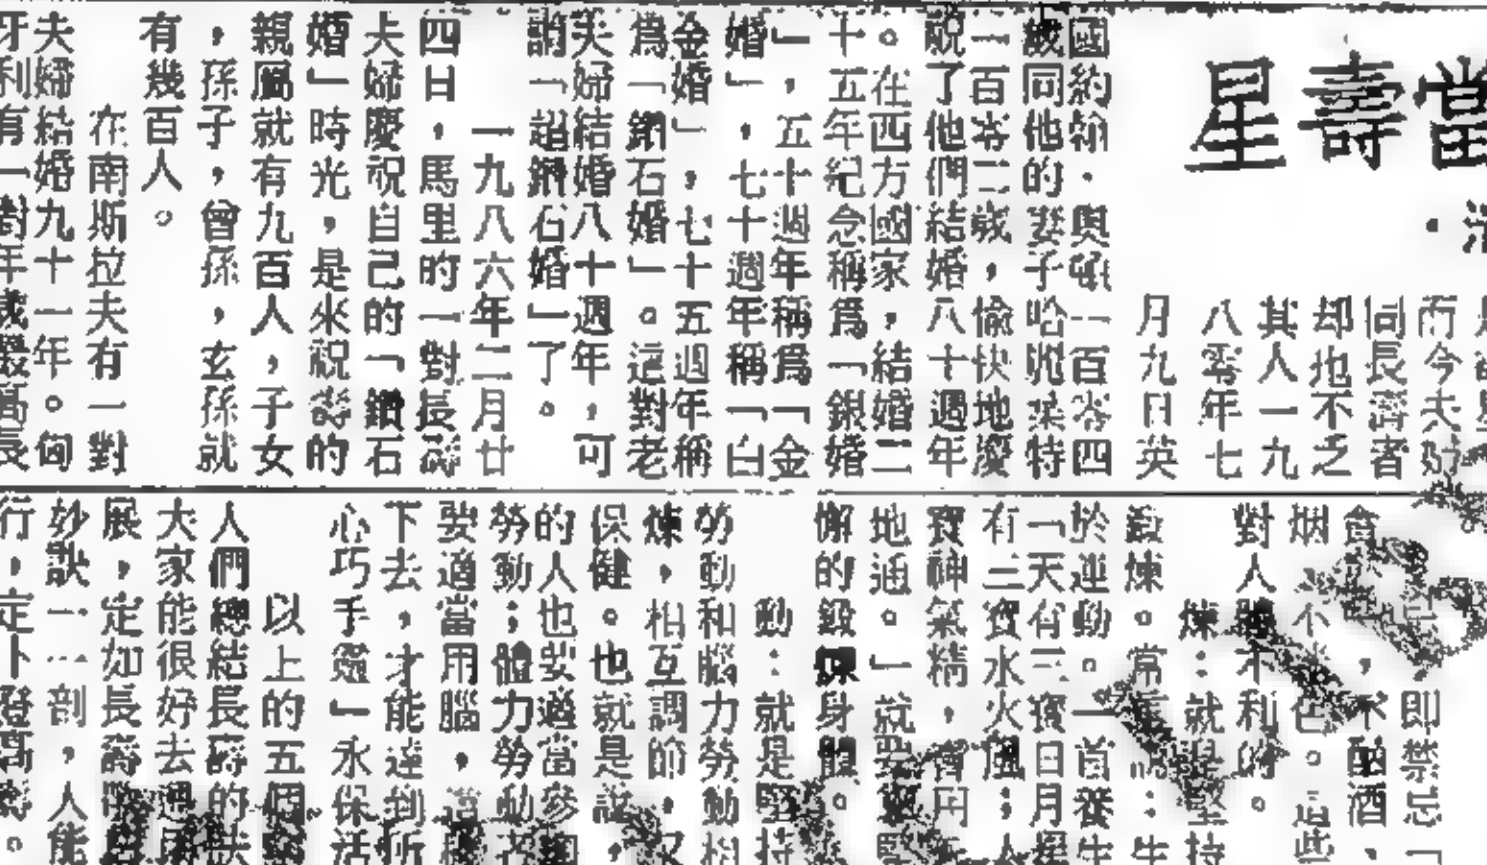 當壽星
而今夫
同長壽者
却也不乏
其人一九
八零年七
月九日英
國約翰·奥頓一百零四
歲同他的妻子哈葉特
一百零二歲，愉快地慶
祝了他們結婚八十週年
。在西方國家，結婚二
十五年紀念稱爲「銀婚
」，五十週年稱爲「金
婚」，七十週年稱「白
金婚」，七十五週年稱
爲「鑽石婚」。這對老
夫婦結婚八十週年，可
謂「超鑽石婚」了。
一九八六年二月廿
四日，馬里的一對長壽
夫婦慶祝自己的「鑽石
婚」時光，是來祝壽的
親屬就有九百人，子女
，孫子，曾孫，玄孫就
有幾百人。
在南斯拉夫有一對
夫婦結婚九十一年。匈
牙利有一對年歲最高長
即禁忌「
貪，不酗酒、
烟，不色。這些
對人體不利的。
煉：就是堅持
鍛煉。常：生
於運動。一首養生
「天有三寶日月星
有三寶水火風；人
寶神氣精，會用
地通。」就要堅
懈的鍛煉身體。
動：就是堅持
勞動和腦力勞動相
煉，相互調節，又
保健。也就是說，
的人也要適當參加
勞動；體力勞動
要適當用腦，這樣
下去，才能達到所
心巧手靈」永保活
以上的五個
人們總結長壽的訣
大家能很好去運用
展，定如長壽
妙訣一一剖，人能
行，定卜登高壽。